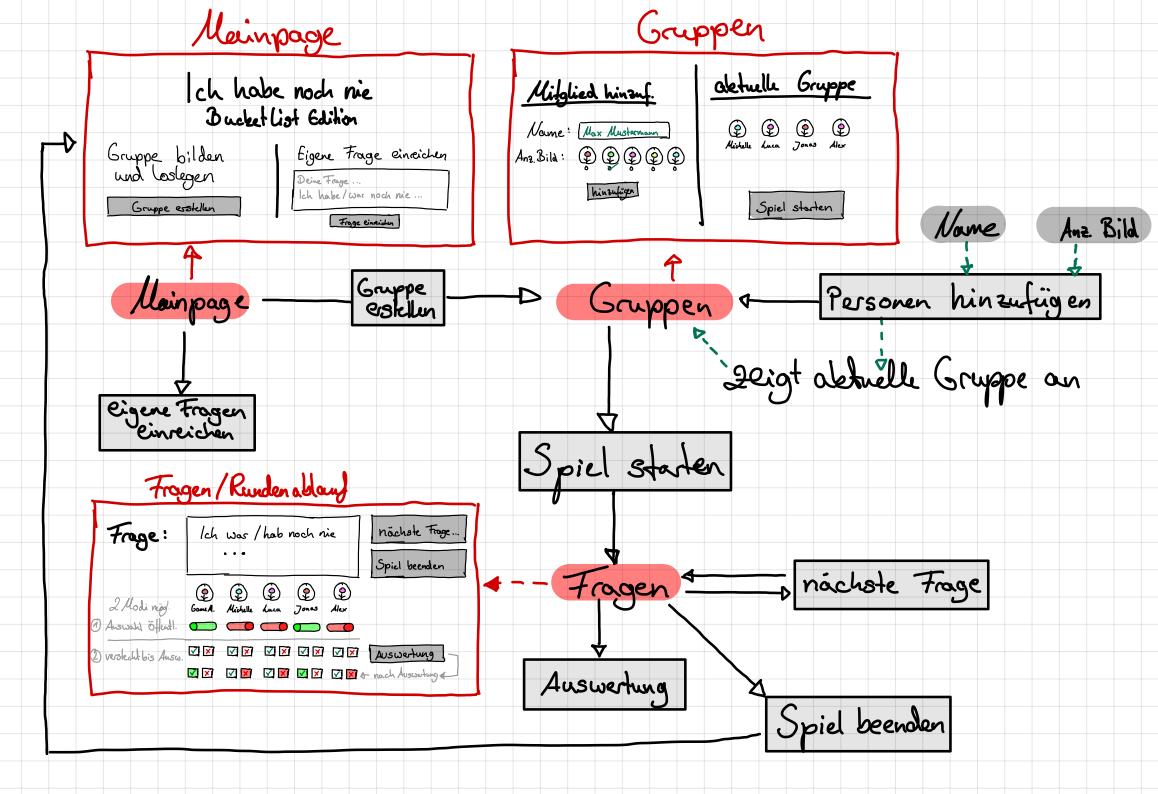 Mainpage
Ich habe noch nie
Bucketlist Edition
Gruppe bilden
und loslegen
Gruppe erstellen
Eigene Frage einreichen
Deine Frage...
Ich habe/war noch nie ...
Frage einreichen
Gruppen
Mitglied hinzuf.
Name: Max Mustermann
Anz. Bild:
hinzufügen
aktuelle Gruppe
Michelle Luca Jonas Alex
Spiel starten
Name
Anz. Bild
Mainpage
Gruppe
erstellen
Gruppen
Personen hinzufügen
zeigt aktuelle Gruppe an
eigene Fragen
einreichen
Spiel starten
Fragen/Rundenablauf
Frage:
Ich war/hab noch nie
...
nächste Frage...
Spiel beenden
Michelle Luca Jonas Alex
2 Modi mögl.
① Auswahl öffentl.
② versteckt bis Ausw.
Auswertung
nach Auswertung
Fragen
nächste Frage
Auswertung
Spiel beenden